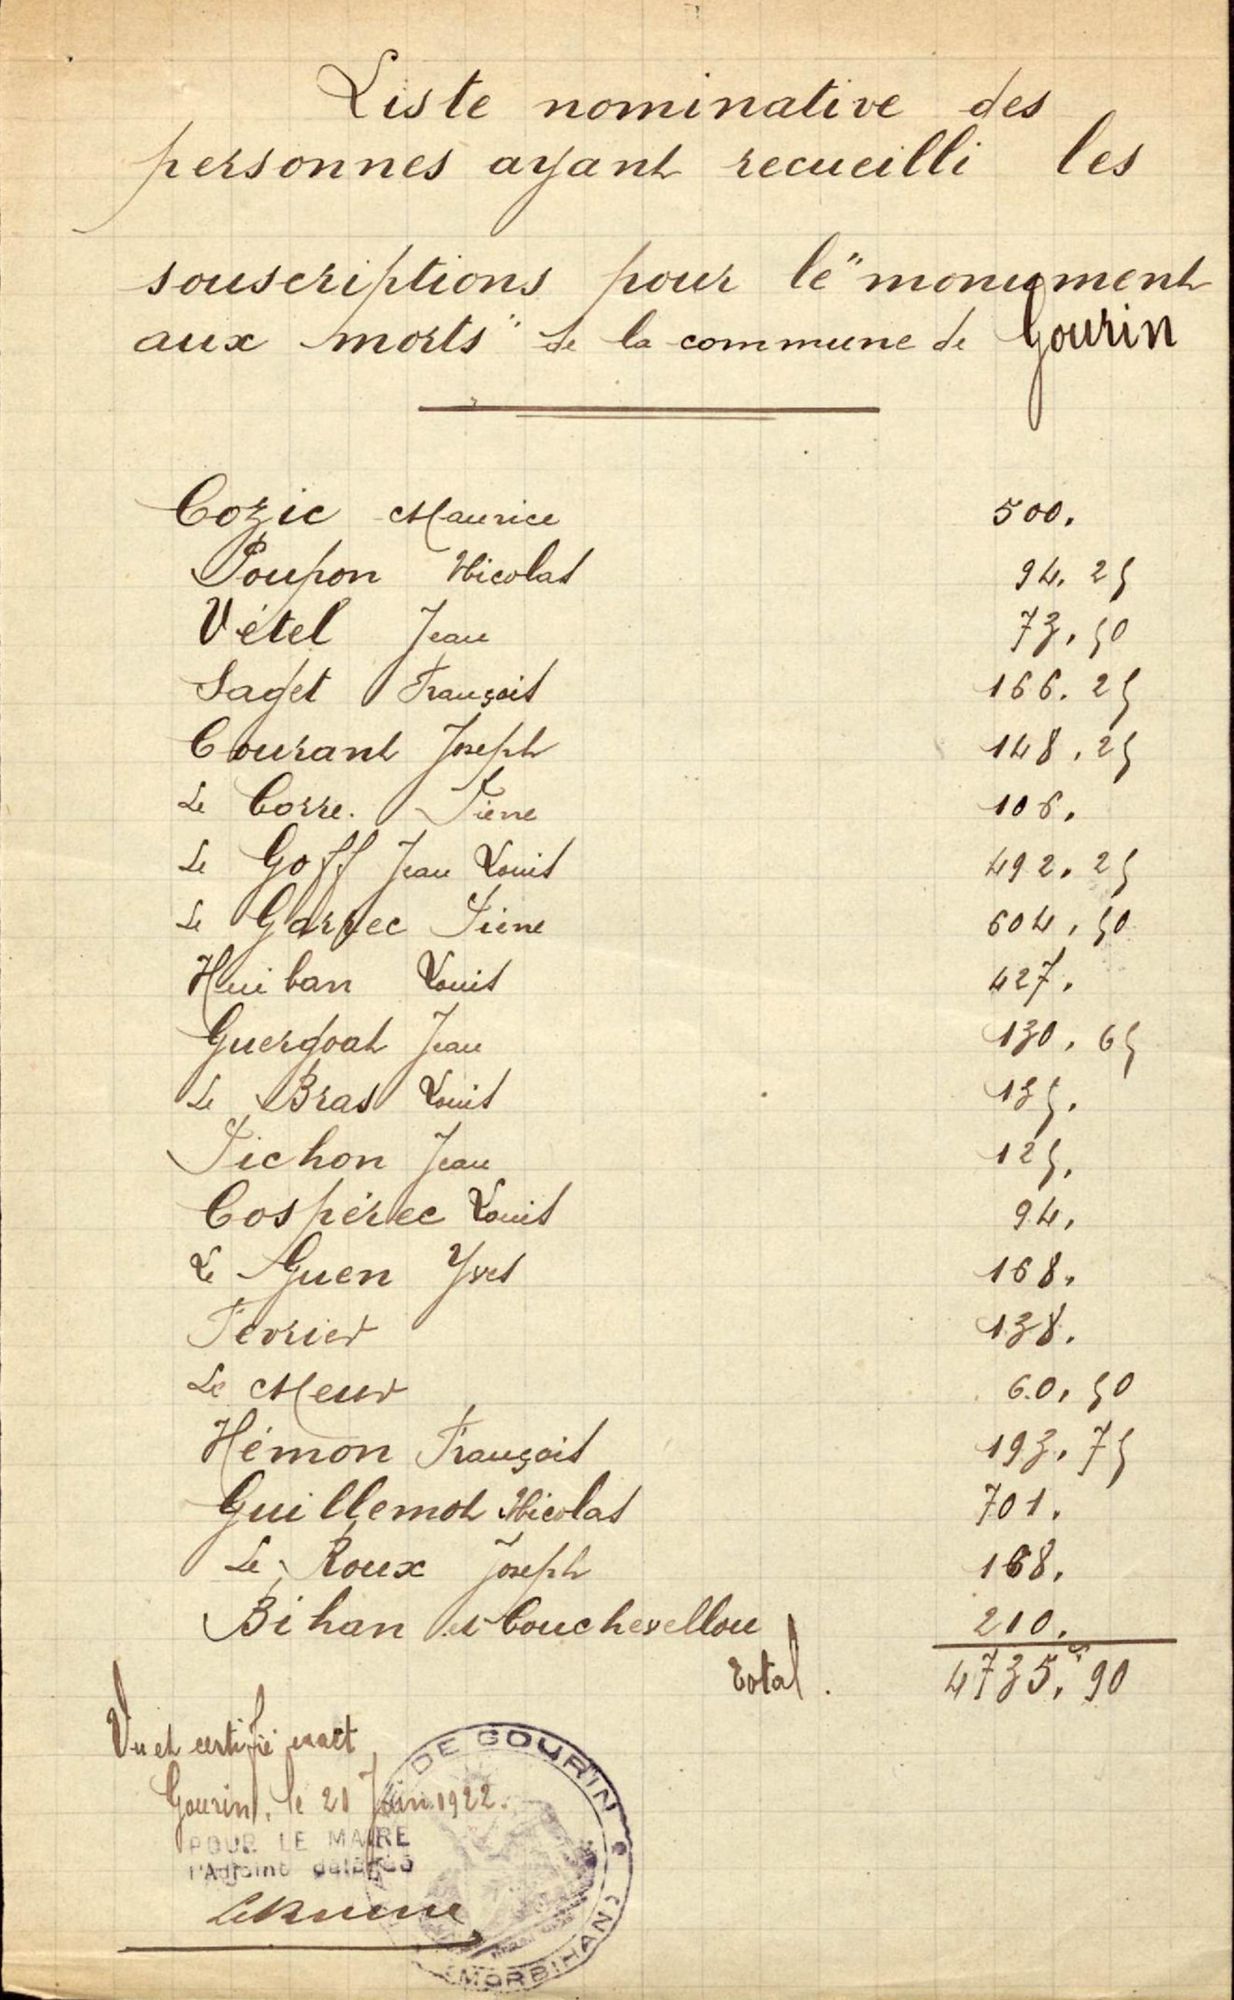 Liste nominative des
personnes ayant recueilli les
souscriptions pour le "monument
aux morts" de la commune de Gourin
Cozic Maurice 500.
Poupon Nicolas 94.25
Vétel Jean 73.50
Saget François 166.25
Courant Joseph 148.25
Le Corre. Pierre 106.
Le Goff Jean Louis 492.25
Le Garrec Pierre 604.50
Huiban Louis 427.
Guergoat Jean 130.65
Le Bras Louis 135.
Pichon Jean 125.
Cospérec Louis 94.
Le Guen Yves 168.
Février 138.
Le Meur 60.50
Hémon François 193.75
Guillemot Nicolas 701.
Le Roux Joseph 168.
Bihan et Couchevellou 210.
Total. 4735.90
Vu et certifié exact
Gourin, le 21 Juin 1922.
POUR LE MAIRE
l'Adjoint délégué
DE GOURIN
(MORBIHAN)